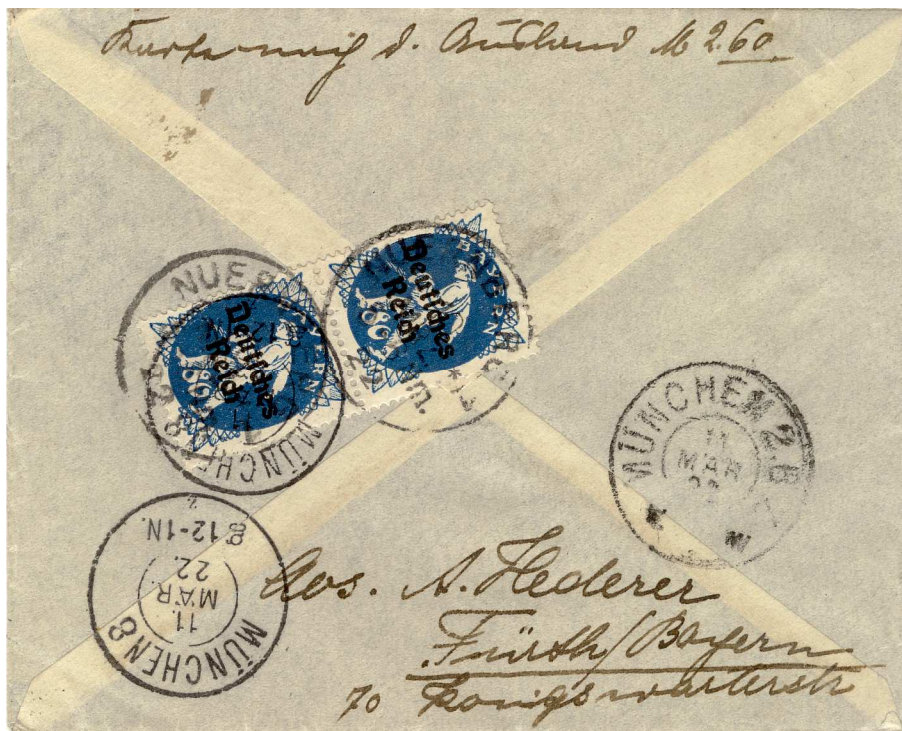 d. Ausland M 2.60
BAYERN
Deutsches
Reich
80
BAYERN
Deutsches
Reich
80
MÜNCHEN 2.B.Z.
11
MÄR
22
MÜNCHEN 8
11.
MÄR
22.
12-1N.
Abs. A. Hederer
Fürth/Bayern
70 Königswarterstr